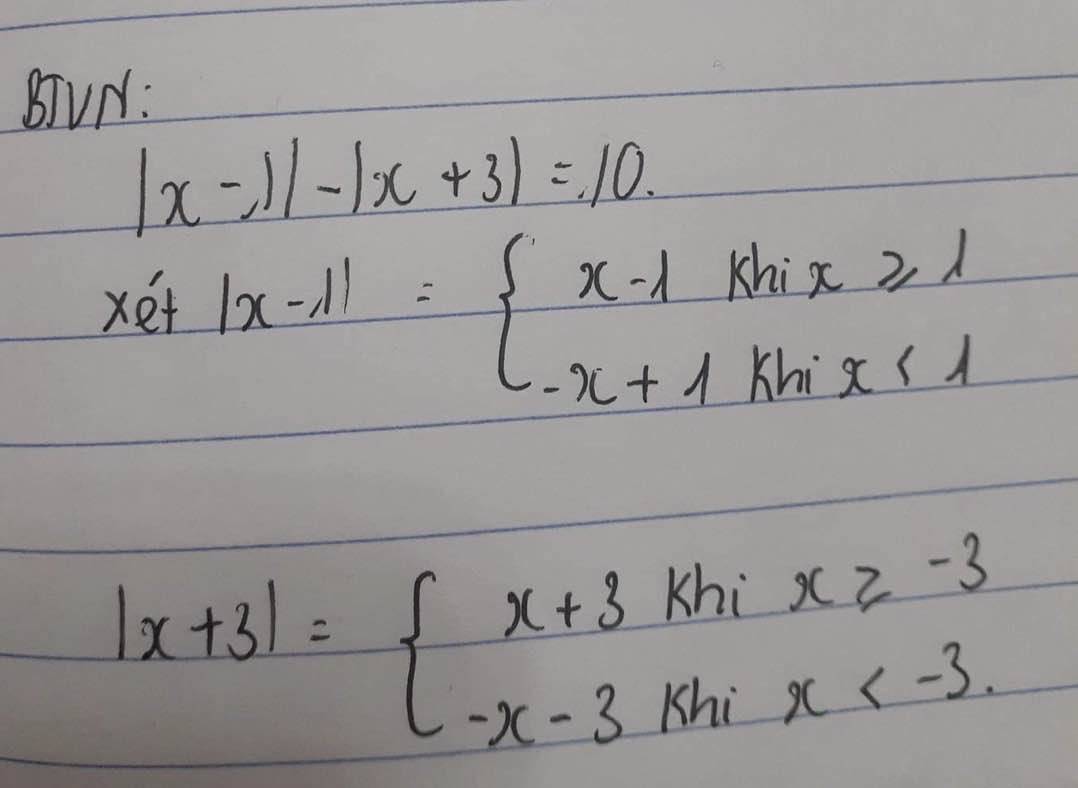 BTVN:
|x - 1| - |x + 3| = 10.
xét |x - 1| = { x - 1 khi x ≥ 1
-x + 1 khi x < 1
|x + 3| = { x + 3 khi x ≥ -3
-x - 3 khi x < -3.